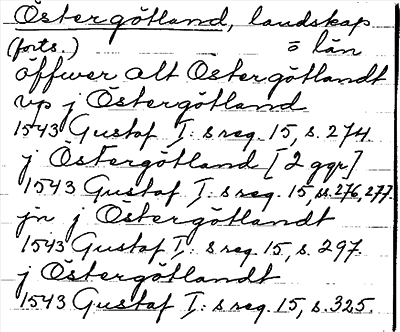 Östergötland, landskap
(forts.) o län
öffwer alt Östergötlandt
vp j Östergötland
1543 Gustaf I:s reg. 15, s. 274.
j Östergötland [2 ggr]
1543 Gustaf I:s reg. 15, ss. 276, 277.
jn j Östergötlandt
1543 Gustaf I:s reg. 15, s. 297.
j Östergötlandt
1543 Gustaf I:s reg. 15, s. 325.